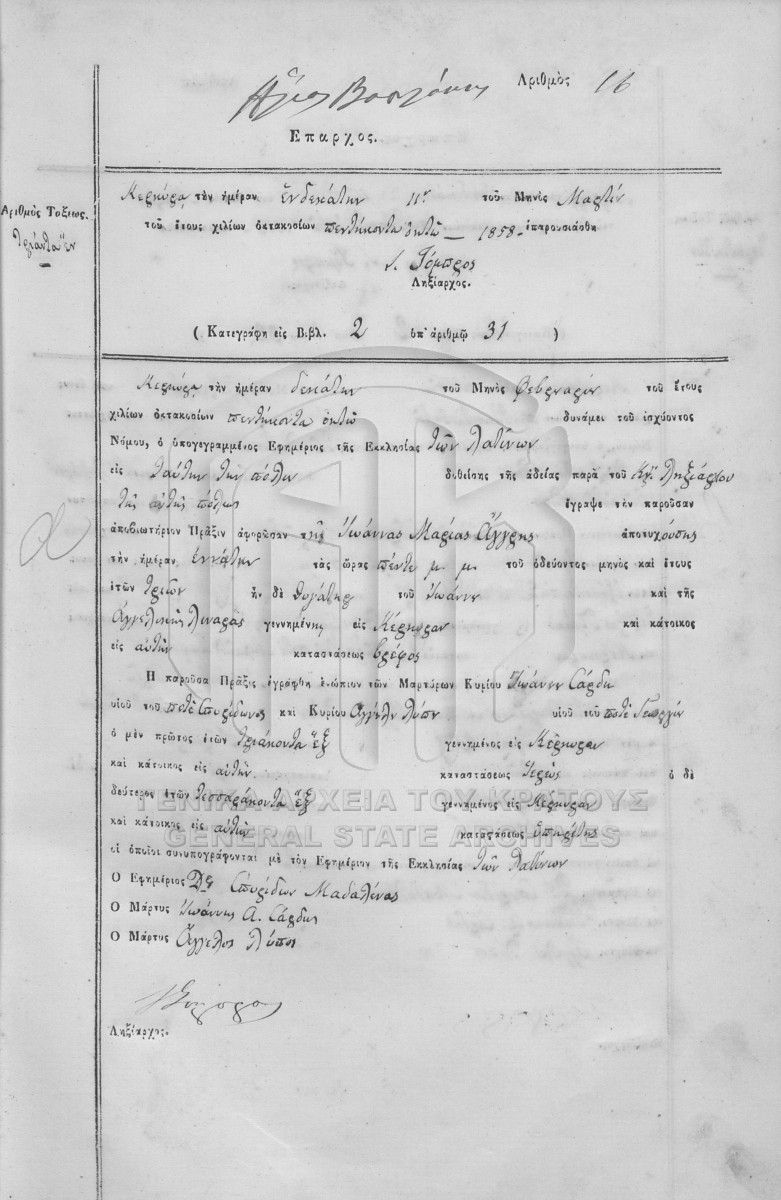 Αριθμὸς 16
Επαρχος.
Αριθμὸς Τάξεως.
τριάντα ἕν
Κερκύρᾳ τὴν ἡμέραν ἑνδεκάτην 11ην τοῦ Μηνὸς Μαρτίου
τοῦ ἔτους χιλίων ὀκτακοσίων πεντήκοντα ὀκτὼ — 1858 - ἐπαρουσιάσθη
Ληξίαρχος.
( Κατεγράφη εἰς Βιβλ. 2 ὑπ' ἀριθμῷ 31 )
Κερκύρᾳ τὴν ἡμέραν δεκάτην τοῦ Μηνὸς Φεβρουαρίου τοῦ ἔτους
χιλίων ὀκτακοσίων πεντήκοντα ὀκτὼ δυνάμει τοῦ ἰσχύοντος
Νόμου, ὁ ὑπογεγραμμένος Εφημέριος τῆς Εκκλησίας τῶν Λατίνων
εἰς ταύτην τὴν πόλιν δοθείσης τῆς ἀδείας παρὰ τοῦ Κυ. Ληξιάρχου
τῆς αὐτῆς πόλεως ἔγραψε τὴν παροῦσαν
ἀποβιωτήριον Πρᾶξιν ἀφορῶσαν τὴν Ἰωάννας Μαρίας Ἄγγρης ἀποτυχούσης
τὴν ἡμέραν ἐννάτην τὰς ὥρας πέντε μ. μ. τοῦ ὁδεύοντος μηνὸς καὶ ἔτους
ἐτῶν τριῶν ἦν δὲ θυγάτηρ τοῦ Ἰωάννου καὶ τῆς
Ἀγγελικῆς Λιναρᾶς γεννημένης εἰς Κέρκυραν καὶ κάτοικος
εἰς αὐτὴν καταστάσεως βρέφος
Η παροῦσα Πρᾶξις ἐγράφθη ἐνώπιον τῶν Μαρτύρων Κυρίου Ἰωάννου Σάρδη
υἱοῦ τοῦ ποτὲ Σπυρίδωνος καὶ Κυρίου Ἀγγέλου Λύπου υἱοῦ τοῦ ποτὲ Γεωργίου
ὁ μὲν πρῶτος ἐτῶν τριάκοντα ἓξ γεννημένος εἰς Κέρκυραν
καὶ κάτοικος εἰς αὐτὴν καταστάσεως Ἱερεὺς ὁ δὲ
δεύτερος ἐτῶν τεσσαράκοντα ἓξ γεννημένος εἰς Κέρκυραν
καὶ κάτοικος εἰς αὐτὴν καταστάσεως ὑπηρέτης
οἱ ὁποῖοι συνυπογράφονται μὲ τὸν Εφημέριον τῆς Εκκλησίας τῶν Λατίνων
Ο Εφημέριος Σπυρίδων Μαδαλένας
Ο Μάρτυς Ἰωάννης Α. Σάρδης
Ο Μάρτυς Ἄγγελος Λύπος
Ληξίαρχος.
ΓΕΝΙΚΑ ΑΡΧΕΙΑ ΤΟΥ ΚΡΑΤΟΥΣ
GENERAL STATE ARCHIVES